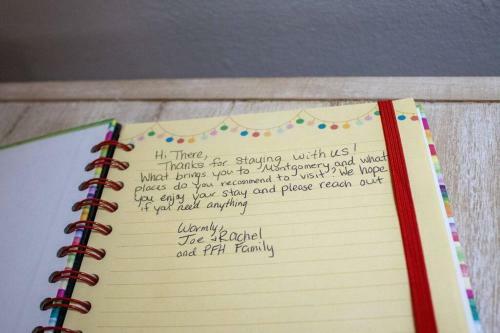 Hi There,
Thanks for staying with us!
What brings you to Montgomery and what
places do you recommend to visit? We hope
you enjoy your stay and please reach out
if you need anything
Warmly,
Joe + Rachel
and PFH Family